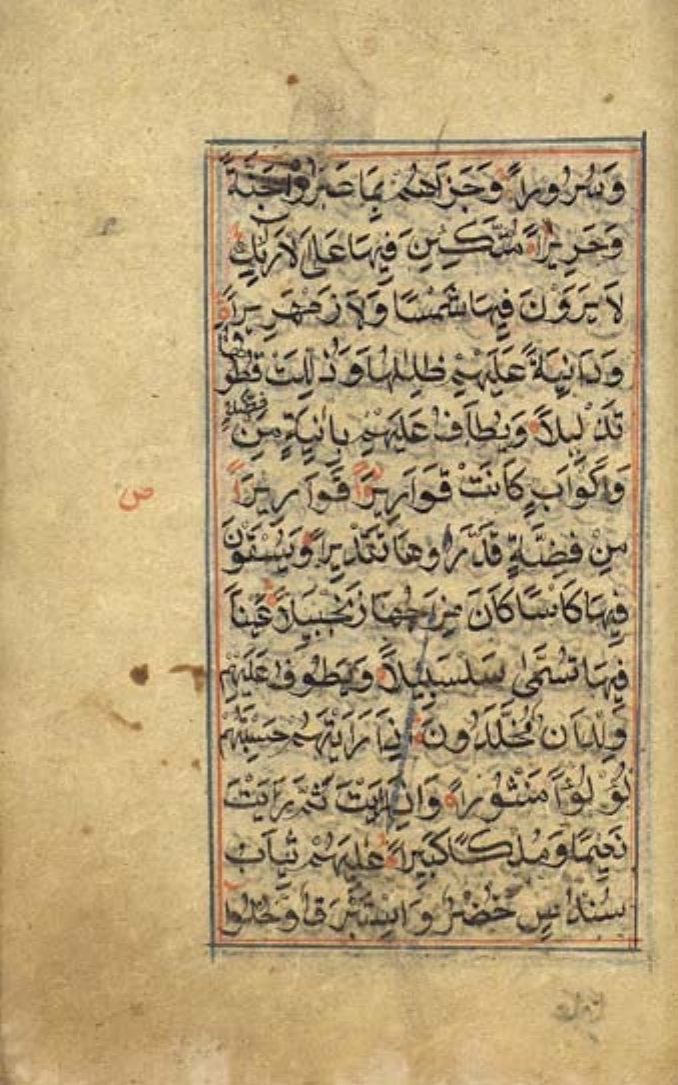 وَسُرُوراً وَجَزٰهُمْ بِمَا صَبَرُوا جَنَّةً
وَحَرِيْراً مُتَّكِئِينَ فِيْهَا عَلَى الْاَرَآئِكِ
لَا يَرَوْنَ فِيهَا شَمْسًا وَلَا زَمْهَرِيراً
وَدَانِيَةً عَلَيْهِمْ ظِلٰلُهَا وَذُلِّلَتْ قُطُوفُهَا
تَذْلِيلاً وَيُطَافُ عَلَيْهِمْ بِاٰنِيَةٍ مِنْ فِضَّةٍ
وَاَكْوَابٍ كَانَتْ قَوَارِيْرَا قَوَارِيرَاً
مِنْ فِضَّةٍ قَدَّرُوهَا تَقْدِيراً وَيُسْقَوْنَ
فِيْهَا كَاْسًا كَانَ مِزَاجُهَا زَنْجَبِيلاً عَيْناً
فِيهَا تُسَمّٰى سَلْسَبِيْلاً وَيَطُوفُ عَلَيْهِمْ
وِلْدَانٌ مُخَلَّدُونَ اِذَا رَاَيْتَهُمْ حَسِبْتَهُمْ
لُؤْلُؤًا مَنْثُوراً وَاِذَا رَاَيْتَ ثَمَّ رَاَيْتَ
نَعِيْمًا وَمُلْكًا كَبِيراً عٰلِيَهُمْ ثِيَابُ
سُنْدُسٍ خُضْرٌ وَاِسْتَبْرَقٌ وَحُلُّوا
ص